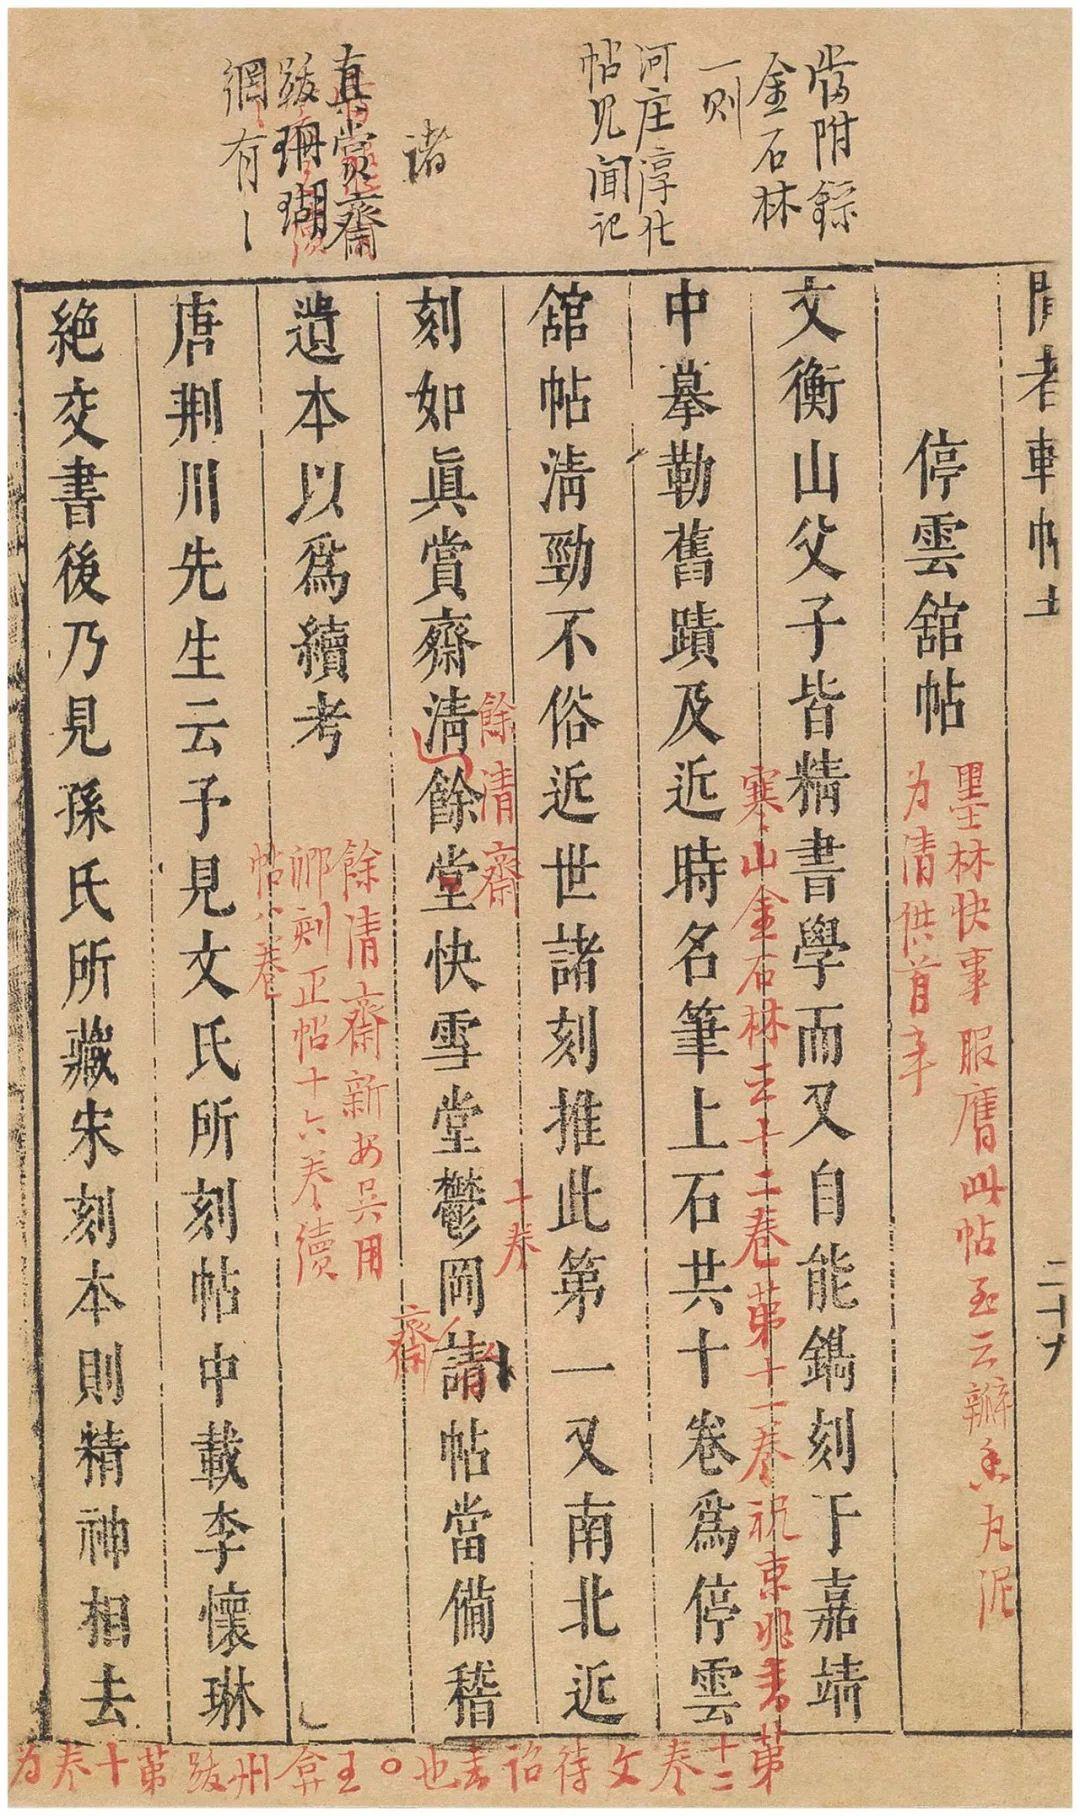 閒者軒帖
二十九
停雲舘帖
墨林快事服膺此帖至云瓣香丸泥
为清供首
文衡山父子皆精書學而又自能鐫刻于嘉靖
寒山金石林云十二卷第十一卷祝京兆書第
十二卷文待诏書也○王弇州跋第十卷为
中摹勒舊蹟及近時名筆上石共十卷爲停雲
舘帖淸勁不俗近世諸刻推此第一又南北近
刻如眞賞齋淸餘堂快雪堂鬱岡請帖當備稽
餘清齋
十卷
齋
遺本以爲續考
餘清齋新安吴用
卿刻正帖十六卷續
帖八卷
唐荆川先生云予見文氏所刻帖中載李懷琳
絶交書後乃見孫氏所藏宋刻本則精神相去
當附錄
金石林
一则
河庄淳化
帖見聞记
诸
真赏齋
跋珊瑚
網有